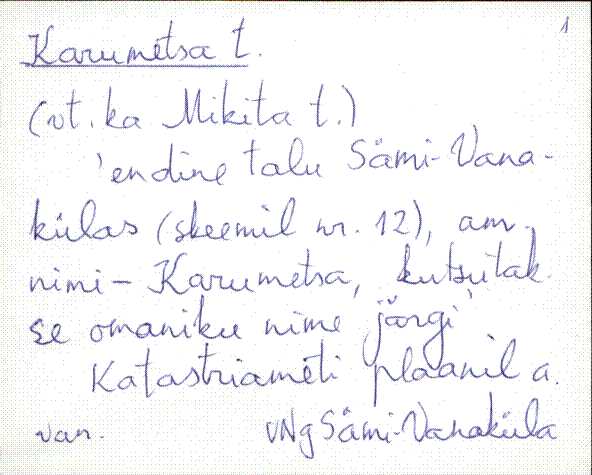 1
Karumetsa t.
(vt. ka Mikita t.)
'endine talu Sämi-Vana-
külas (skeemil nr. 12), am.
nimi - Karumetsa, kutsutak-
se omaniku nime järgi'
Katastriameti plaanil a.
van. VNg Sämi-Vanaküla